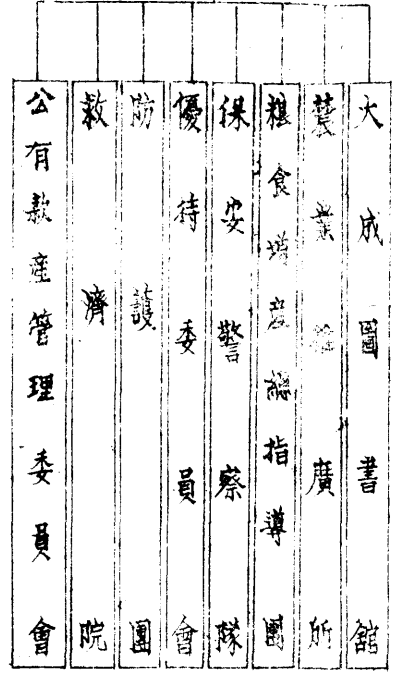 大成圖書館
農業推廣所
糧食増産總指導團
保安警察隊
優待委員會
防護團
救濟院
公有款產管理委員會